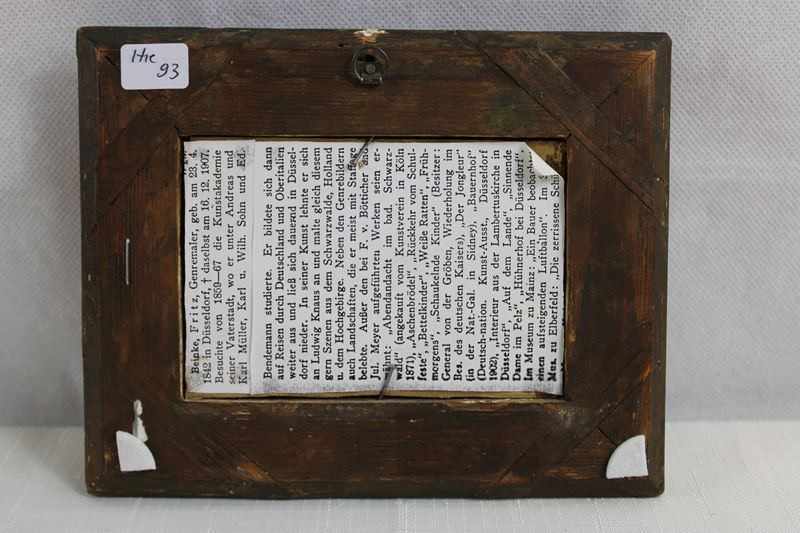 Hk
93
Beinke, Fritz, Genremaler, geb. am 23. 4.
1842 in Düsseldorf, † daselbst am 16. 12. 1907.
Besuchte von 1859—67 die Kunstakademie
seiner Vaterstadt, wo er unter Andreas und
Karl Müller, Karl u. Wilh. Sohn und Ed.
Bendemann studierte. Er bildete sich dann
auf Reisen durch Deutschland und Oberitalien
weiter aus und ließ sich dauernd in Düssel-
dorf nieder. In seiner Kunst lehnte er sich
an Ludwig Knaus an und malte gleich diesem
gern Szenen aus dem Schwarzwalde, Holland
u. dem Hochgebirge. Neben den Genrebildern
auch Landschaften, die er meist mit Staffage
belebte. Außer den bei F. v. Bötticher und
Jul. Meyer aufgeführten Werken seien er-
wähnt: „Abendandacht im bad. Schwarz-
wald“ (angekauft vom Kunstverein in Köln
1871), „Aschenbrödel“, „Rückkehr vom Schul-
feste“, „Bettelkinder“, „Weiße Ratten“, „Früh-
morgens“, „Schaukelnde Kinder“ (Besitzer:
General von der Gröben, Wiederholung im
Bes. des deutschen Kaisers), „Der Jongleur“
(in der Nat.-Gal. in Sidney), „Bauernhof“
(Deutsch-nation. Kunst-Ausst., Düsseldorf
1902), „Interieur aus der Lambertuskirche in
Düsseldorf“, „Auf dem Lande“, „Sinnende
Dame im Pelz“, „Hühnerhof bei Düsseldorf“.
Im Museum zu Mainz: „Ein Bauer
einen aufsteigenden Luftballon“. Im
Mus. zu Elberfeld: „Die zerrissene